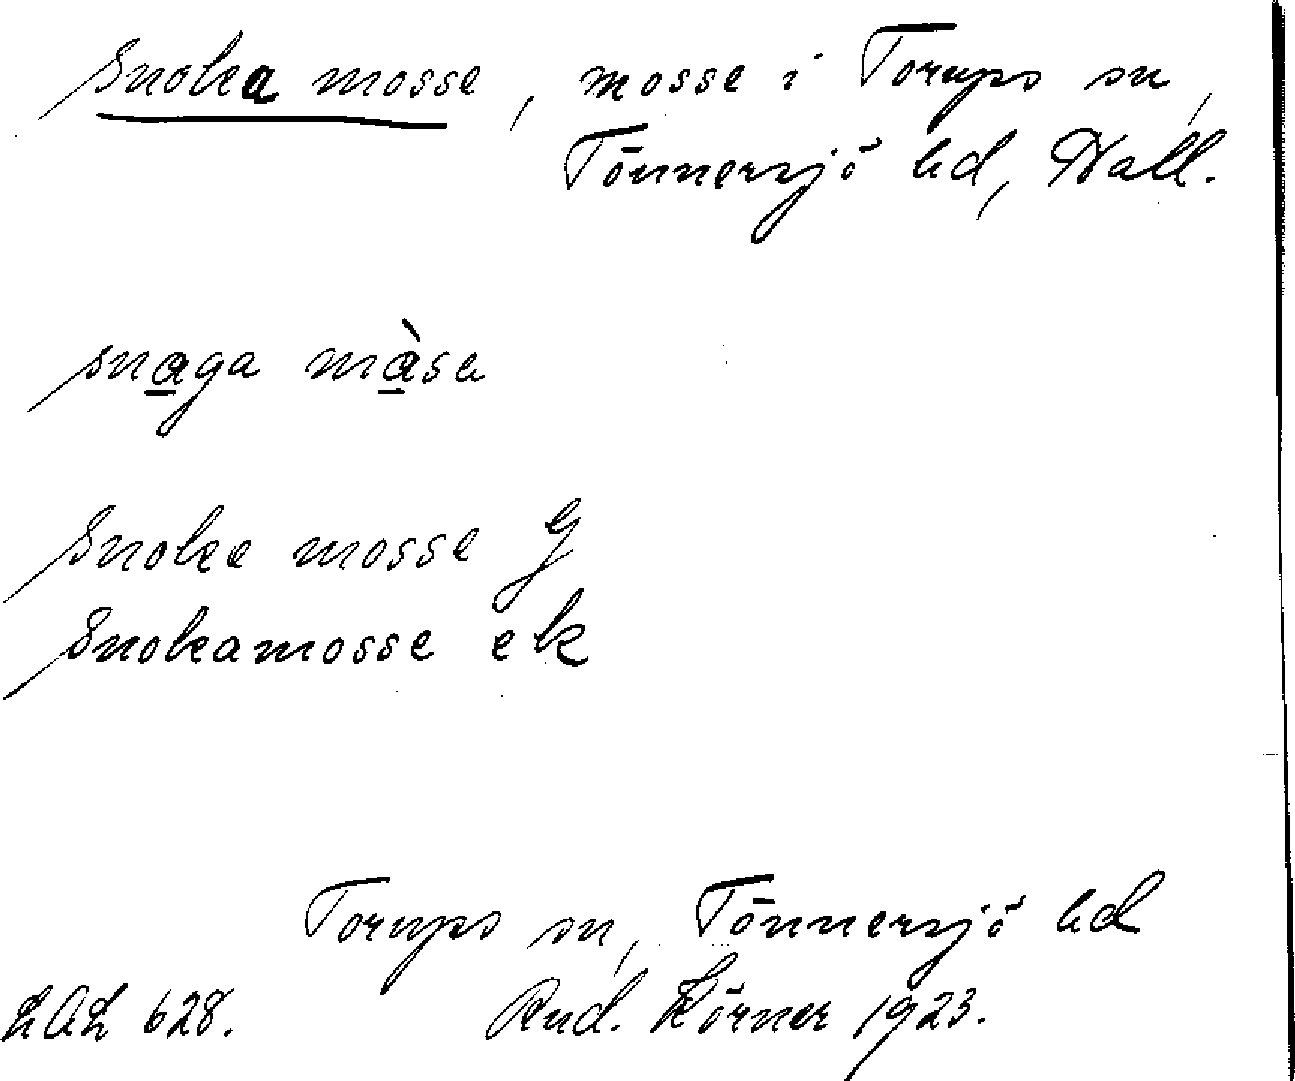 Snoka mosse, mosse i Torups sn,
Tönnersjö hd, Hall.
snaga màsa
Snoka mosse G
Snokamosse ek
Torups sn, Tönnersjö hd
LAL 628. Rud. Körner 1923.